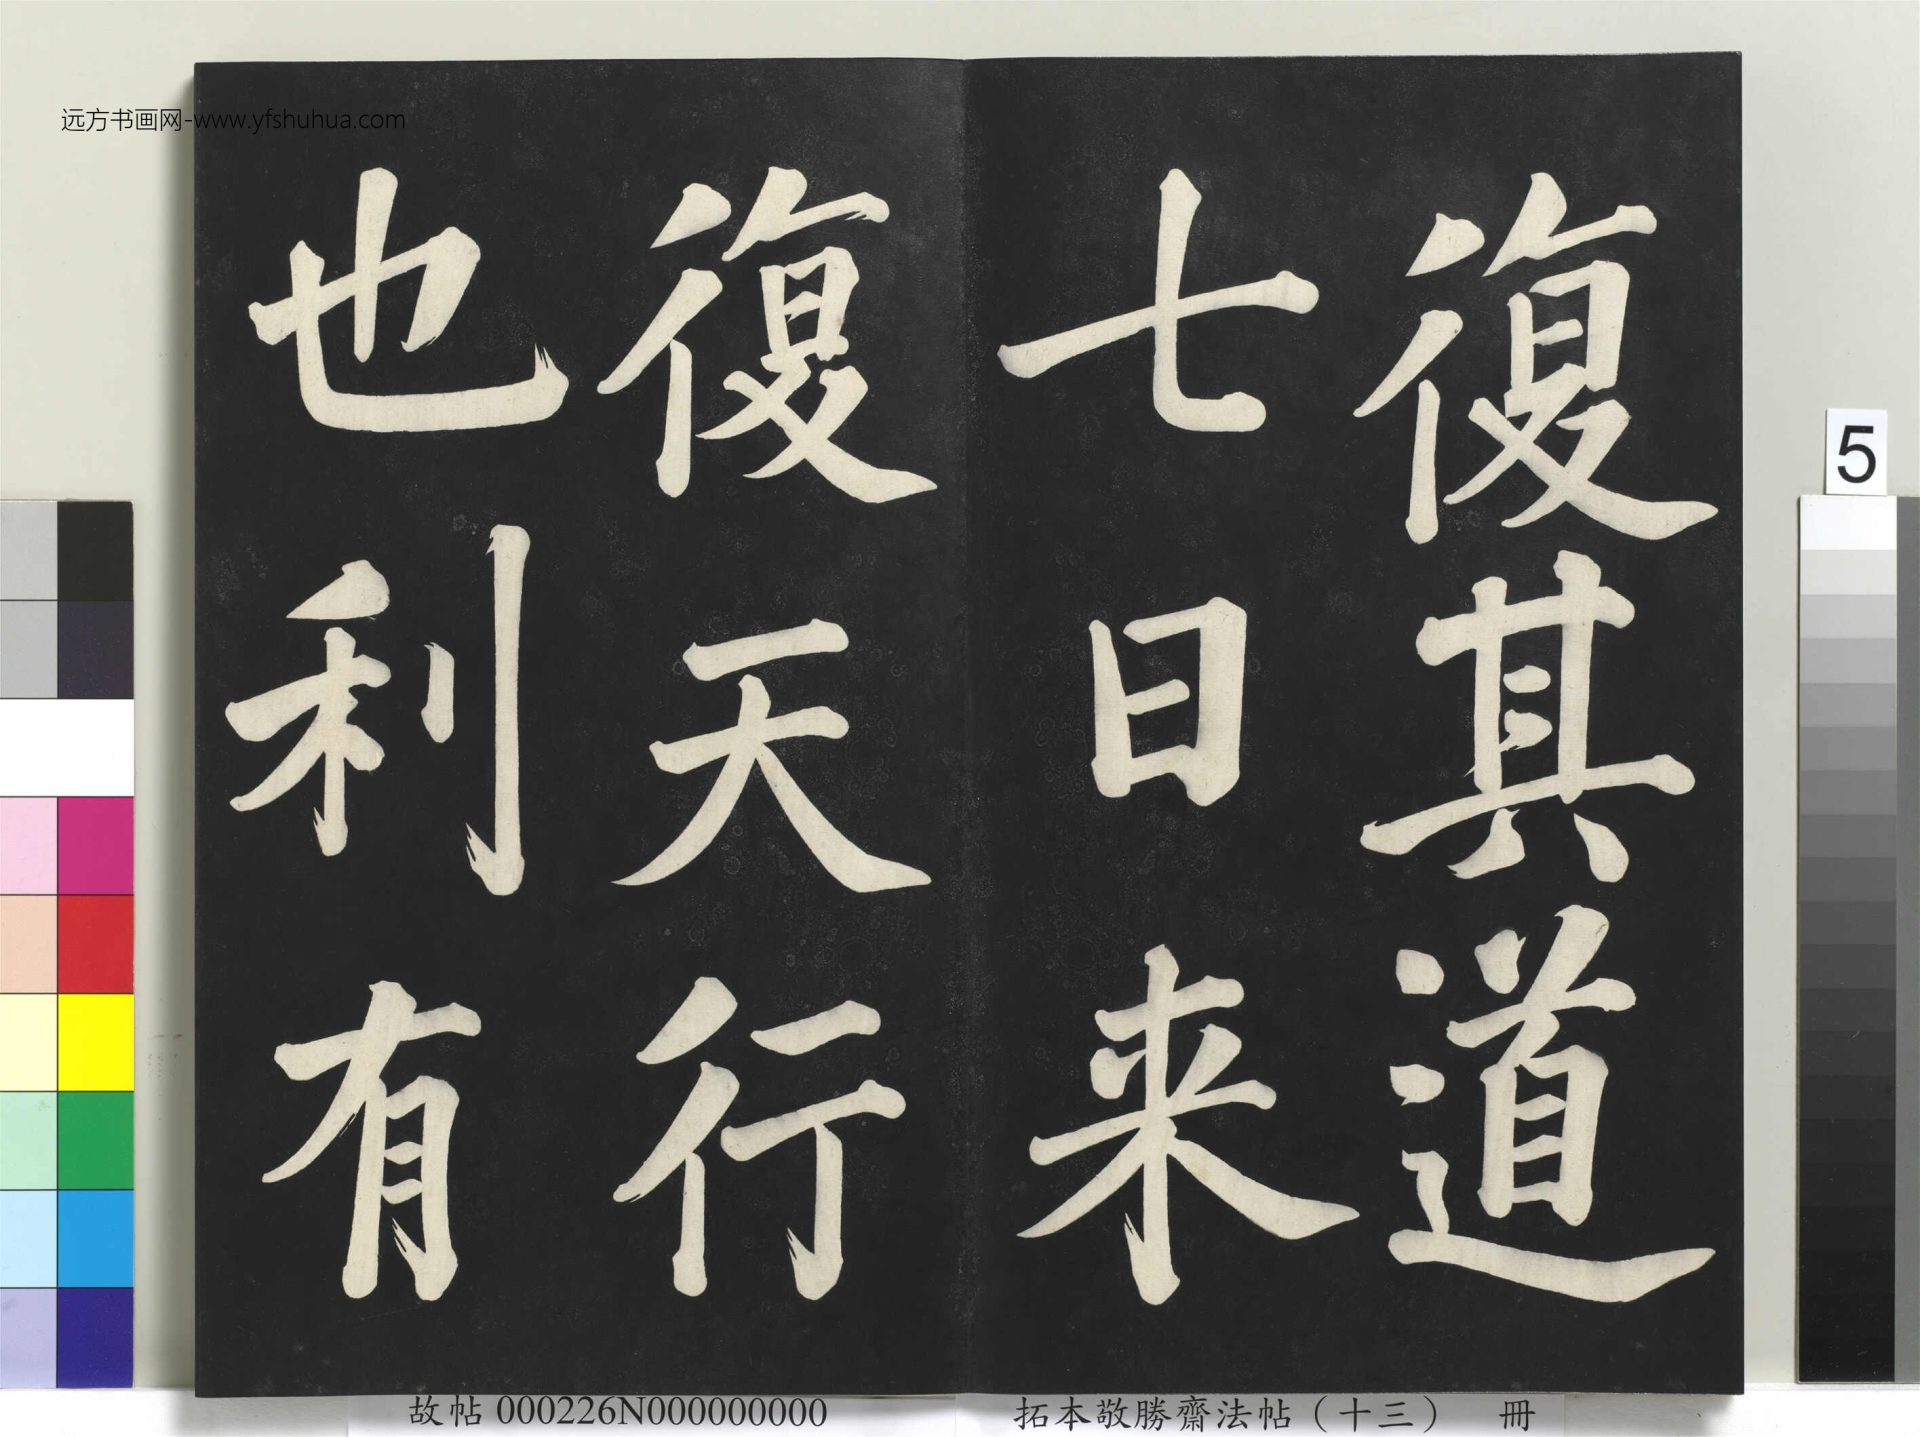 远方书画网-www.yfshuhua.com
復其道
七日来
復天行
也利有
5
拓本敬勝齋法帖（十三） 冊
故帖 000226N000000000